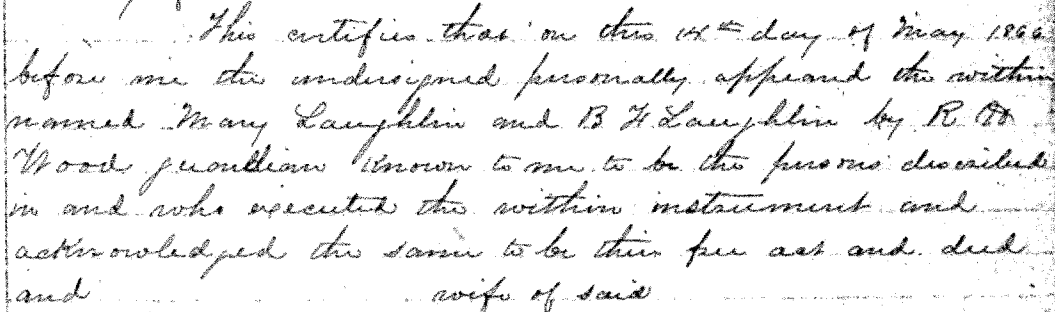 This certifies that on this 14th day of May 1866
before me the undersigned personally appeared the within
named Mary Laughlin and B F Laughlin by R
Wood guardian Known to me to be the persons described
in and who executed the within instrument and
acknowledged the same to be their free act and deed
and wife of said